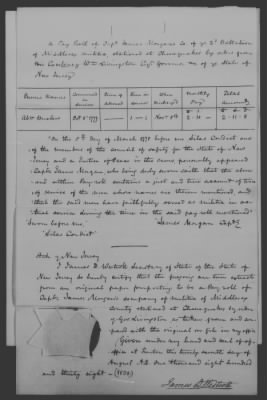 A Pay Roll of Capt James Morgans Co of ye 2d Battalion
of Middlesex militia, stationed at Cheesequakes by order given
his Excellency Wm Livingston Esqr Governor of ye State of
New Jersey
Persons Names Commenced in Service Time of Service When Discharged Monthly Pay Total Amount
Oct 8 1777 1 Nov 8th 2 - 11 2 - 11 - 8
On the 5th day of March 1778 before me Silas Condict one
of the members of the council of safety for the State of New
Jersey and a Justice of Peace in the same personally appeared
Capt James Morgan, who being duly sworn saith that the above
and within Pay roll contains a just and true account of time
of service of the men whose names are therein mentioned, and
that the said men have faithfully served as militia in
that service during the time in the said pay roll mentioned
Sworn before me James Morgan Capt
Silas Condict
State of New Jersey
I James D. Westcott Secretary of State of the State of
New Jersey do hereby certify that the foregoing are true extracts
from an original paper purporting to be a Pay roll of
Capt James Morgan's company of militia of Middlesex
County stationed at Cheesequakes by order
of Gov Livingston as taken from and com
pared with the original on file in my office
Given under my hand and seal of
office at Trenton the twenty seventh day of
August A.D. one thousand eight hundred
and thirty eight - (1838)
James D Westcott